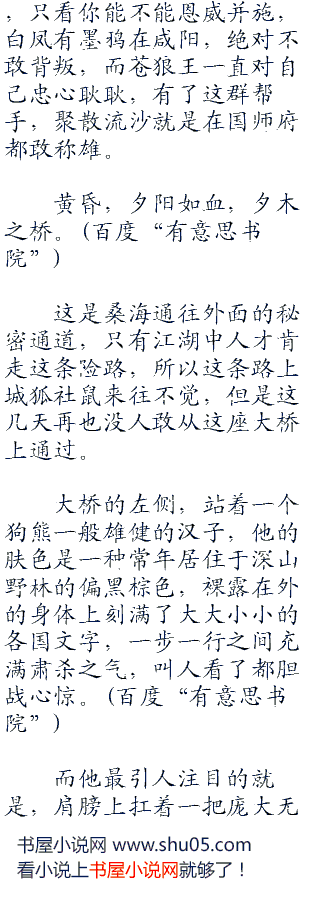 ，只看你能不能恩威并施，
白凤有墨鸦在咸阳，绝对不
敢背叛，而苍狼王一直对自
己忠心耿耿，有了这群帮
手，聚散流沙就是在国师府
都敢称雄。
黄昏，夕阳如血，夕木
之桥。(百度“有意思书
院”)
这是桑海通往外面的秘
密通道，只有江湖中人才肯
走这条险路，所以这条路上
城狐社鼠来往不觉，但是这
几天再也没人敢从这座大桥
上通过。
大桥的左侧，站着一个
狗熊一般雄健的汉子，他的
肤色是一种常年居住于深山
野林的偏黑棕色，裸露在外
的身体上刻满了大大小小的
各国文字，一步一行之间充
满肃杀之气，叫人看了都胆
战心惊。(百度“有意思书
院”)
而他最引人注目的就
是，肩膀上扛着一把庞大无
书屋小说网 www.shu05.com
看小说上书屋小说网就够了！